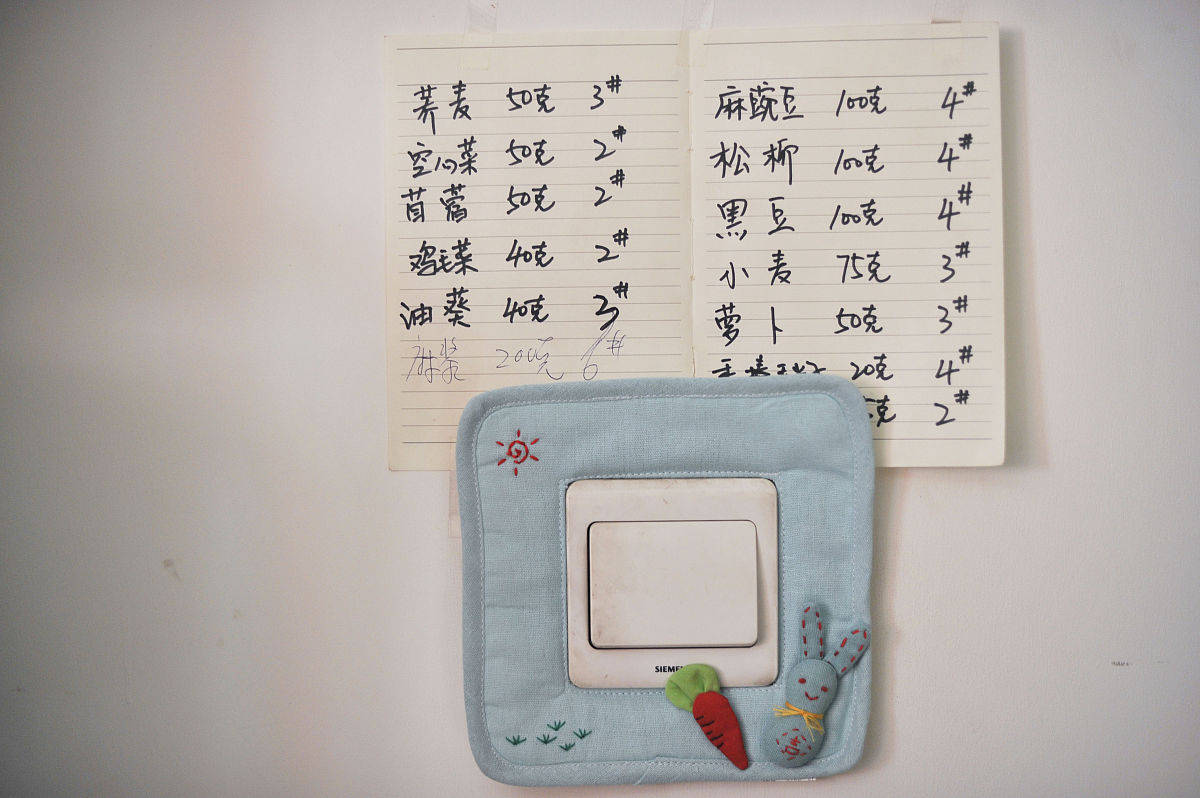 荞麦 50克 3#
空心菜 50克 2#
苜蓿 50克 2#
鸡毛菜 40克 2#
油葵 40克 3#
麻 200克 6#
麻豌豆 100克 4#
松柳 100克 4#
黑豆 100克 4#
小麦 75克 3#
萝卜 50克 3#
20克 4#
克 2#
SIEME